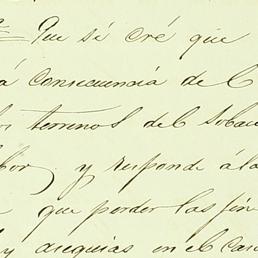 = Que sí cré que
á consecuencia de l
os terrenos del Soba
bor, y responde á la
que perder las fin
y asequias en el Ca